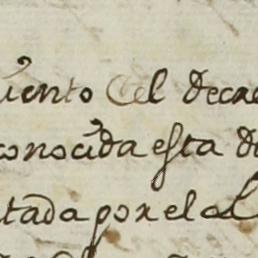 uiento el decre
conocida esta de
tada por el al